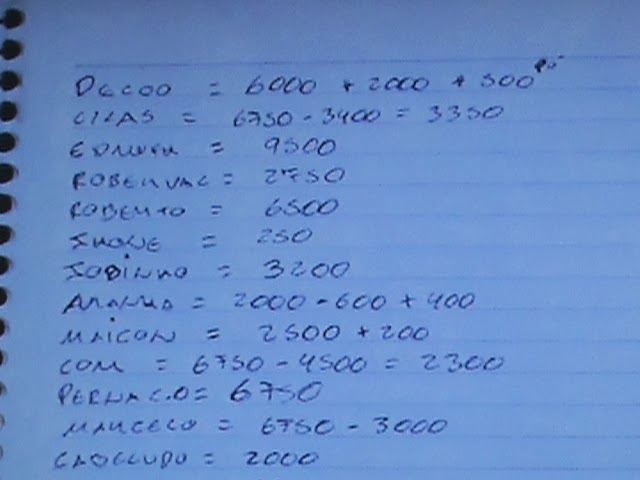 DECOO = 6000 + 2000 + 500
CICAS = 6750 - 3400 = 3350
= 9500
ROBENVAC = 2750
ROBENTO = 6500
= 250
JOBINHO = 3200
= 2000 - 600 + 400
MAICON = 2500 + 200
COM = 6750 - 4500 = 2300
PERNAC.O = 6750
MANCECO = 6750 - 3000
CAOCCUDO = 2000